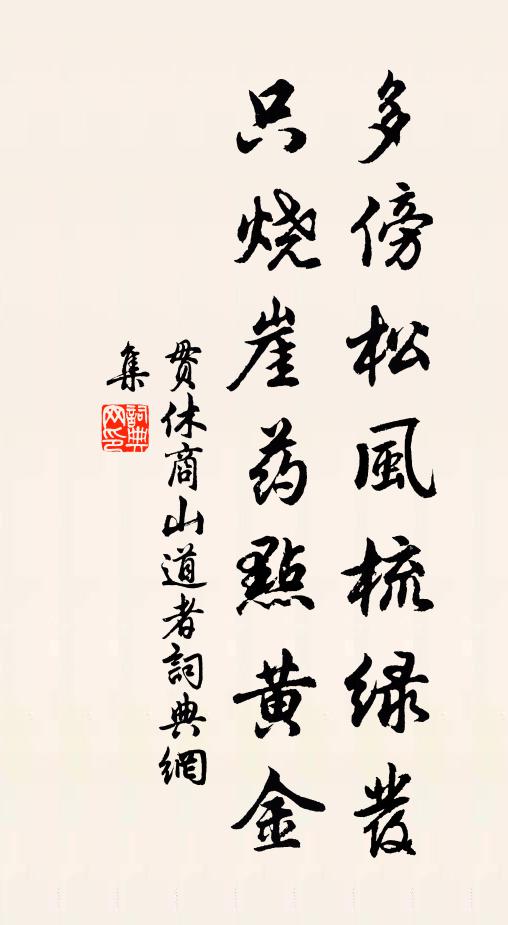 多傍松風梳緑發
只烧崖药點黄金
贯休商山道者詞典網
集
詞典网印